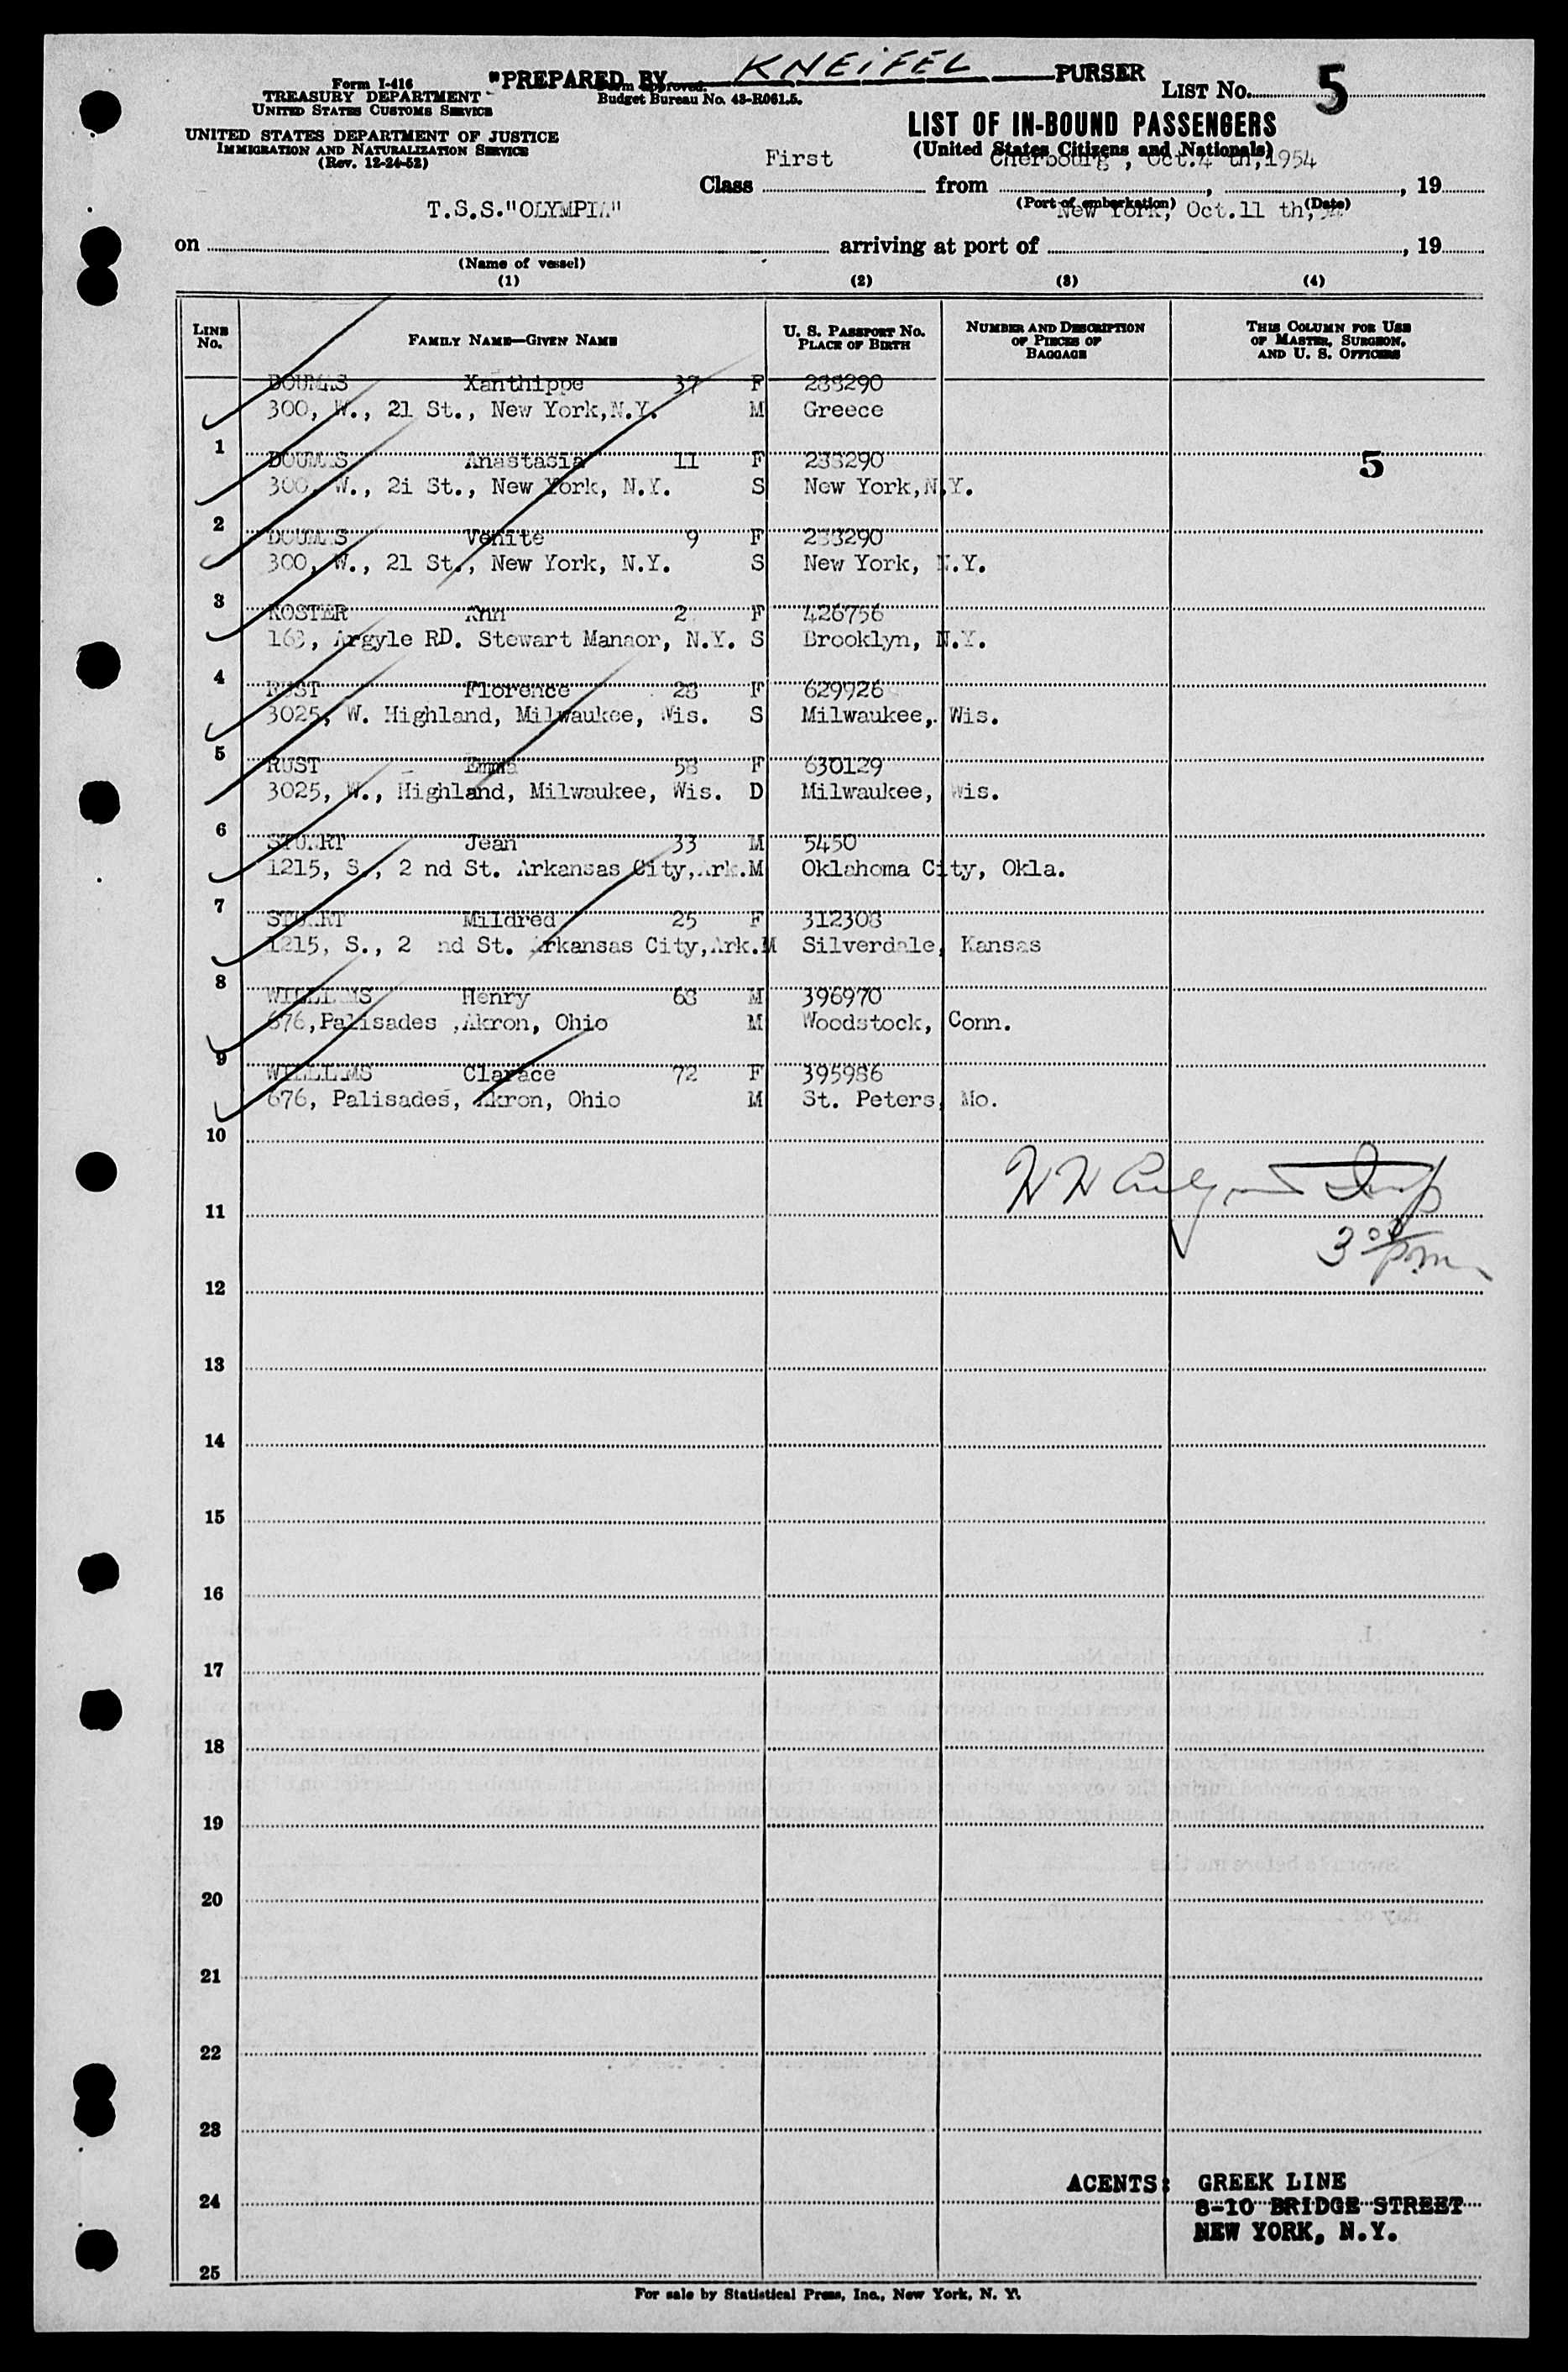 Form I-416
TREASURY DEPARTMENT
UNITED STATES CUSTOMS SERVICE
UNITED STATES DEPARTMENT OF JUSTICE
IMMIGRATION AND NATURALIZATION SERVICE
(Rev. 12-24-52)
"PREPARED BY KNEIFEL PURSER
Form approved.
Budget Bureau No. 43-R061.5.
LIST No. 5
LIST OF IN-BOUND PASSENGERS
(United States Citizens and Nationals)
Class First from Cherbourg , Oct.4 th,1954 , 19
(Port of embarkation) (Date)
on T.S.S."OLYMPIA" arriving at port of New York, Oct.11 th,54 , 19
(Name of vessel)
(1) (2) (3) (4)
LINE No. FAMILY NAME—GIVEN NAME U. S. PASSPORT No. PLACE OF BIRTH NUMBER AND DESCRIPTION OF PIECES OF BAGGAGE THIS COLUMN FOR USE OF MASTER, SURGEON, AND U. S. OFFICERS
DOUMAS Xanthippe 37 F 233290
300, W., 21 St., New York,N.Y. M Greece
1
DOUMAS Anastasia 11 F 233290 5
300, W., 2i St., New York, N.Y. S New York,N.Y.
2
DOUMAS Venite 9 F 233290
300, W., 21 St., New York, N.Y. S New York, N.Y.
3
KOSTER Ann 2 F 426756
163, Argyle RD. Stewart Manaor, N.Y. S Brooklyn, N.Y.
4
RUST Florence 28 F 629926
3025, W. Highland, Milwaukee, Wis. S Milwaukee, Wis.
5
RUST Emma 58 F 630129
3025, W., Highland, Milwaukee, Wis. D Milwaukee, Wis.
6
STUART Jean 33 M 5450
1215, S., 2 nd St. Arkansas City,Ark.M Oklahoma City, Okla.
7
STUART Mildred 25 F 312308
1215, S., 2 nd St. Arkansas City,Ark.M Silverdale, Kansas
8
WILLIAMS Henry 68 M 396970
676,Palisades ,Akron, Ohio M Woodstock, Conn.
9
WILLIAMS Clarace 72 F 395986
676, Palisades, Akron, Ohio M St. Peters, Mo.
10
11
3 00 pm
12
13
14
15
16
17
18
19
20
21
22
23
AGENTS: GREEK LINE
24
8-10 BRIDGE STREET
NEW YORK, N.Y.
25
For sale by Statistical Press, Inc., New York, N. Y.